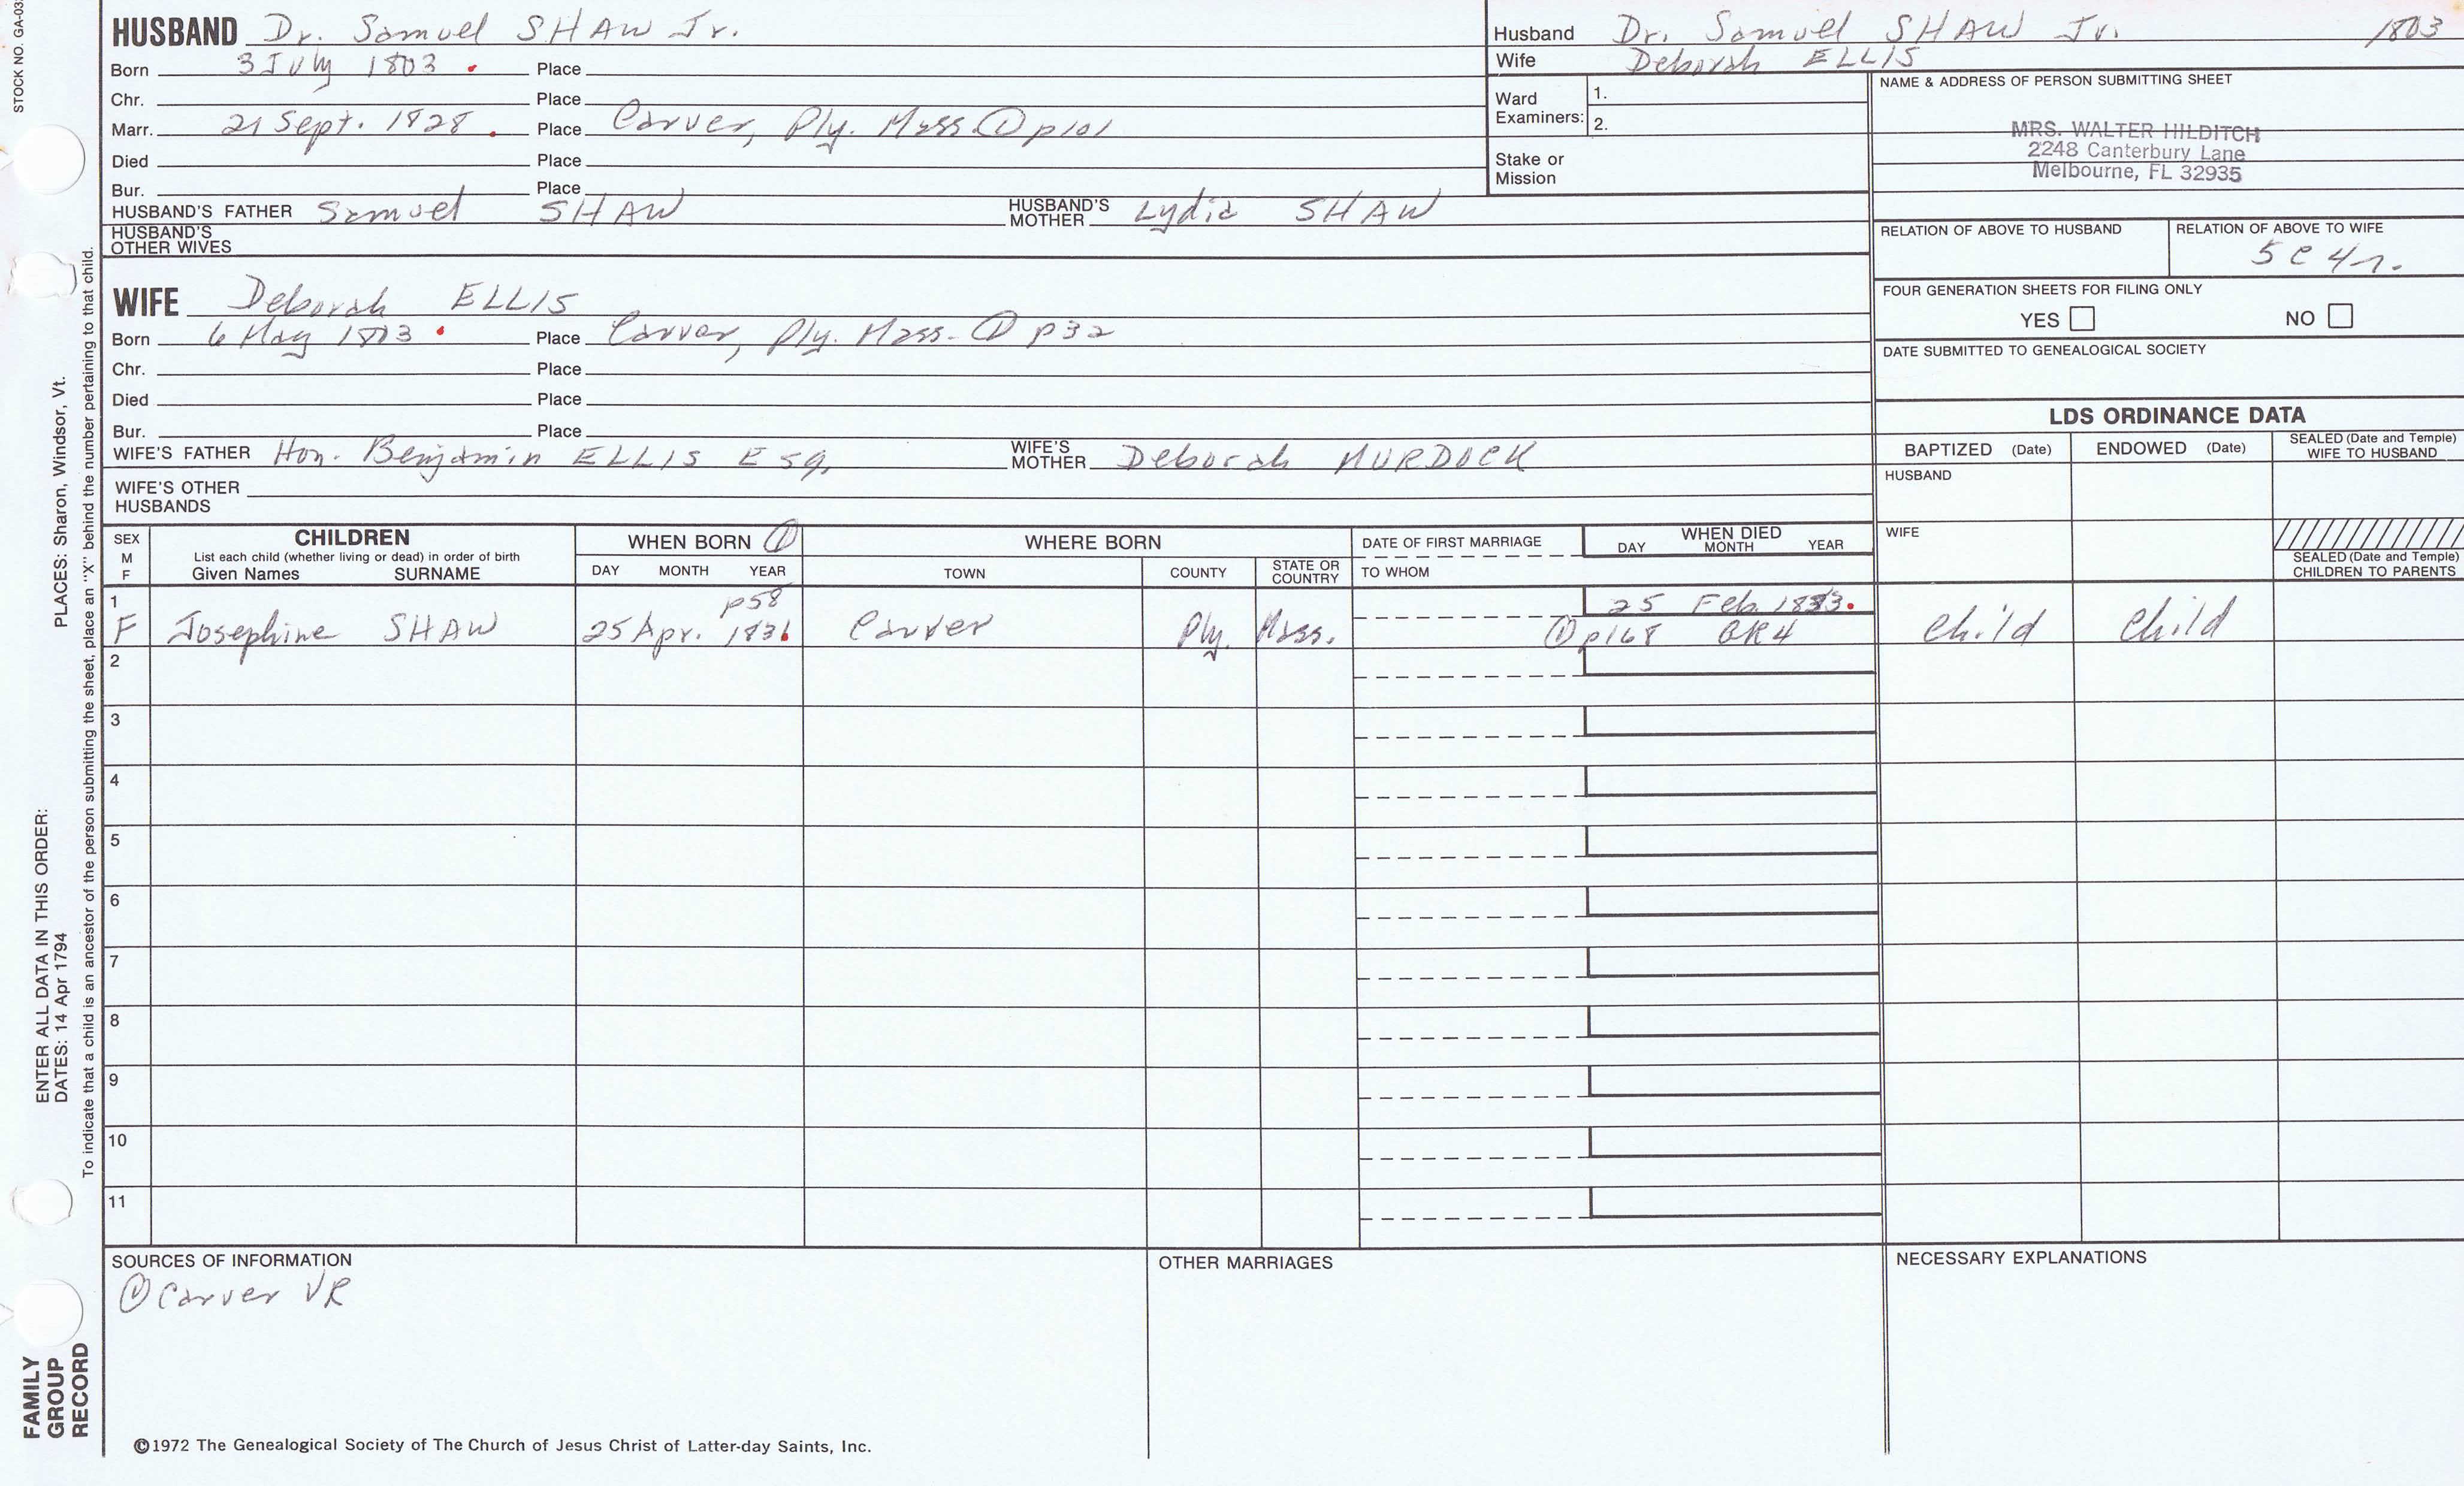 STOCK NO. GA-03
HUSBAND Dr. Samuel SHAW Jr.
Born 3 July 1803 . Place
Chr. Place
Marr. 21 Sept. 1828 . Place Carver, Ply. Mass. ① p101
Died Place
Bur. Place
HUSBAND'S FATHER Samuel SHAW HUSBAND'S MOTHER Lydia SHAW
HUSBAND'S OTHER WIVES
WIFE Deborah ELLIS
Born 6 May 1803 . Place Carver, Ply. Mass. ① p32
Chr. Place
Died Place
Bur. Place
WIFE'S FATHER Hon. Benjamin ELLIS Esq. WIFE'S MOTHER Deborah MURDOCK
WIFE'S OTHER HUSBANDS
Husband Dr. Samuel SHAW Jr. 1803
Wife Deborah ELLIS
Ward Examiners: 1.
2.
Stake or Mission
NAME & ADDRESS OF PERSON SUBMITTING SHEET
MRS. WALTER HILDITCH
2248 Canterbury Lane
Melbourne, FL 32935
RELATION OF ABOVE TO HUSBAND
RELATION OF ABOVE TO WIFE
5C 4r.
FOUR GENERATION SHEETS FOR FILING ONLY
YES NO
DATE SUBMITTED TO GENEALOGICAL SOCIETY
LDS ORDINANCE DATA
BAPTIZED (Date) ENDOWED (Date) SEALED (Date and Temple) WIFE TO HUSBAND
HUSBAND
WIFE
SEALED (Date and Temple) CHILDREN TO PARENTS
SEX M F
CHILDREN
List each child (whether living or dead) in order of birth
Given Names SURNAME
WHEN BORN ①
DAY MONTH YEAR
WHERE BORN
TOWN COUNTY STATE OR COUNTRY
DATE OF FIRST MARRIAGE
TO WHOM
WHEN DIED
DAY MONTH YEAR
1 p58 25 Feb. 1833.
F Josephine SHAW 25 Apr. 1831. Carver Ply. Mass. ① p168 GR4 Child Child
2
3
4
5
6
7
8
9
10
11
SOURCES OF INFORMATION
① Carver VR
OTHER MARRIAGES
NECESSARY EXPLANATIONS
©1972 The Genealogical Society of The Church of Jesus Christ of Latter-day Saints, Inc.
FAMILY
GROUP
RECORD
ENTER ALL DATA IN THIS ORDER:
DATES: 14 Apr 1794 PLACES: Sharon, Windsor, Vt.
To indicate that a child is an ancestor of the person submitting the sheet, place an "X" behind the number pertaining to that child.